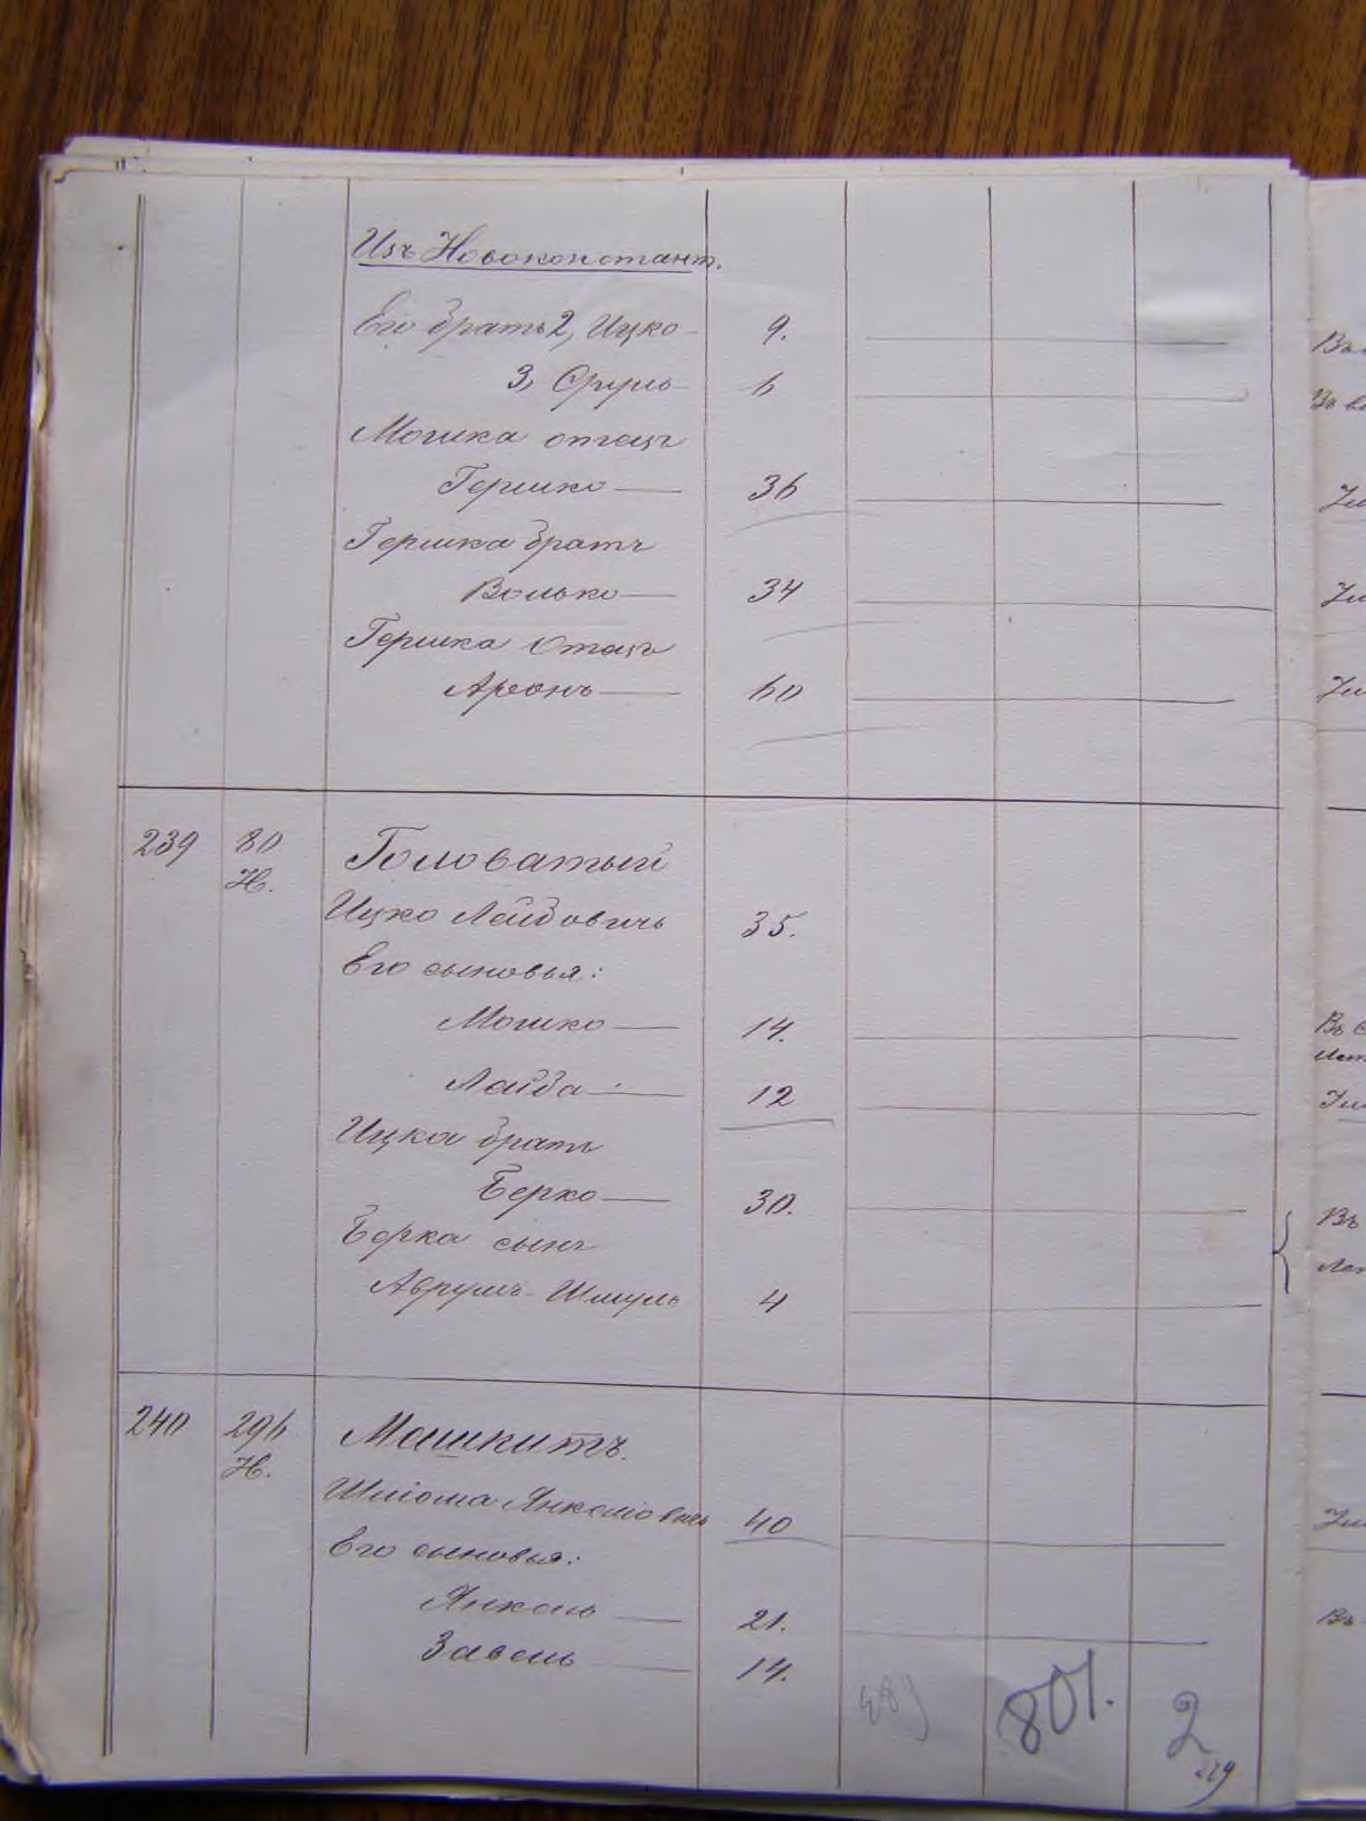 Изъ Новоконстант.
Его братъ 2, Ицко — 9.
3, Сруль — 6
Мошка отецъ
Гершко — 36
Гершка братъ
Волько — 34
Гершка Отецъ
Аронъ — 60
239 80 Головатый
Н.
Ицко Лейбовичъ 35.
Его сыновья:
Мошко — 14.
Лейба — 12
Ицка братъ
Берко — 30.
Берка сынъ
Аврумъ-Шмуль 4
240 296 Машкитъ.
Н.
Шліома Янкеліовичъ 40
Его сыновья:
Янкель — 21.
Завель — 14.
801.
2
Въ